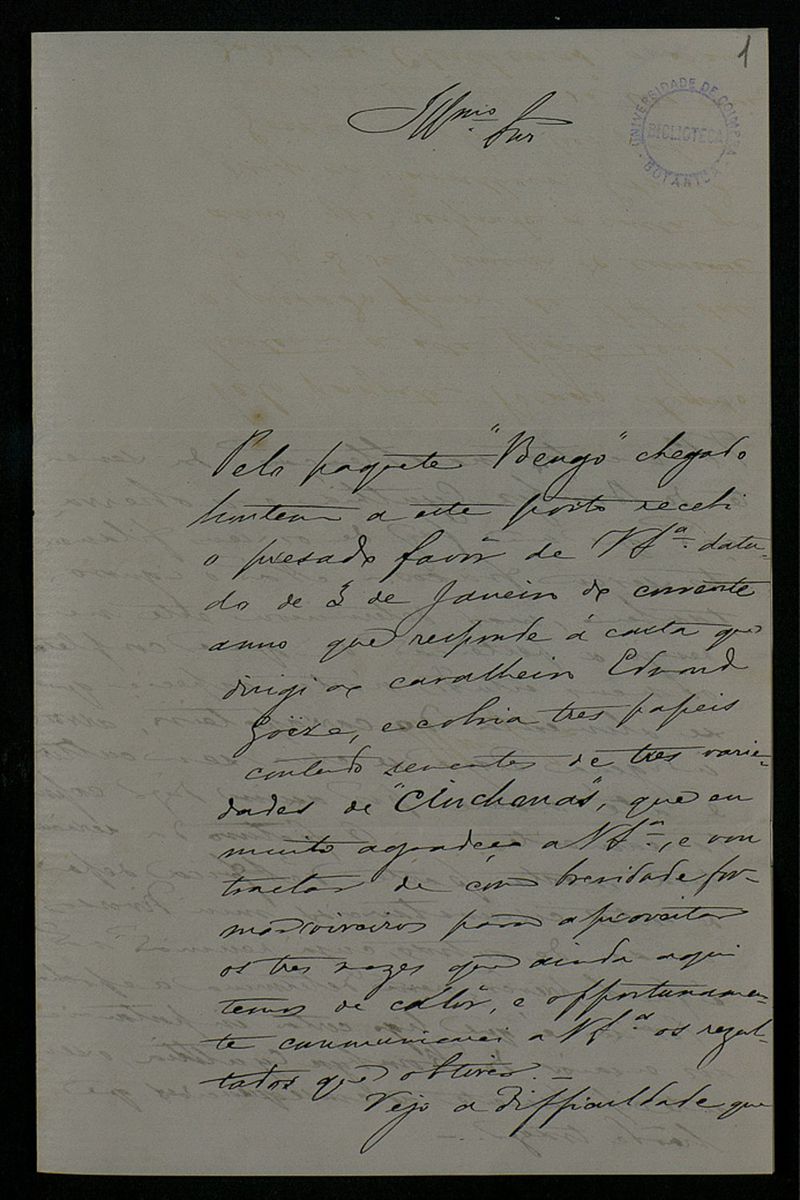 1
UNIVERSIDADE DE COIMBRA
BIBLIOTECA
BOTANICA
Illmo Snr
Pelo paquete "Bengo" chegado
hontem a este porto recebi
o presado favôr de V Sª data-
do de 3 de Janeiro do corrente
anno que responde á carta que
dirigi ao cavalheiro Edmond
Goëze, e cobria tres papeis
contendo sementes de tres varie-
dades de "Cinchonas", que eu
muito agradeço a V Sª, e vou
tractar de com brevidade for-
mar viveiros para aproveitar
os tres mezes que ainda aqui
temos de calôr, e opportunamen-
te communicarei a V Sª os rezul-
tados que obtiver.
Vejo a difficuldade que